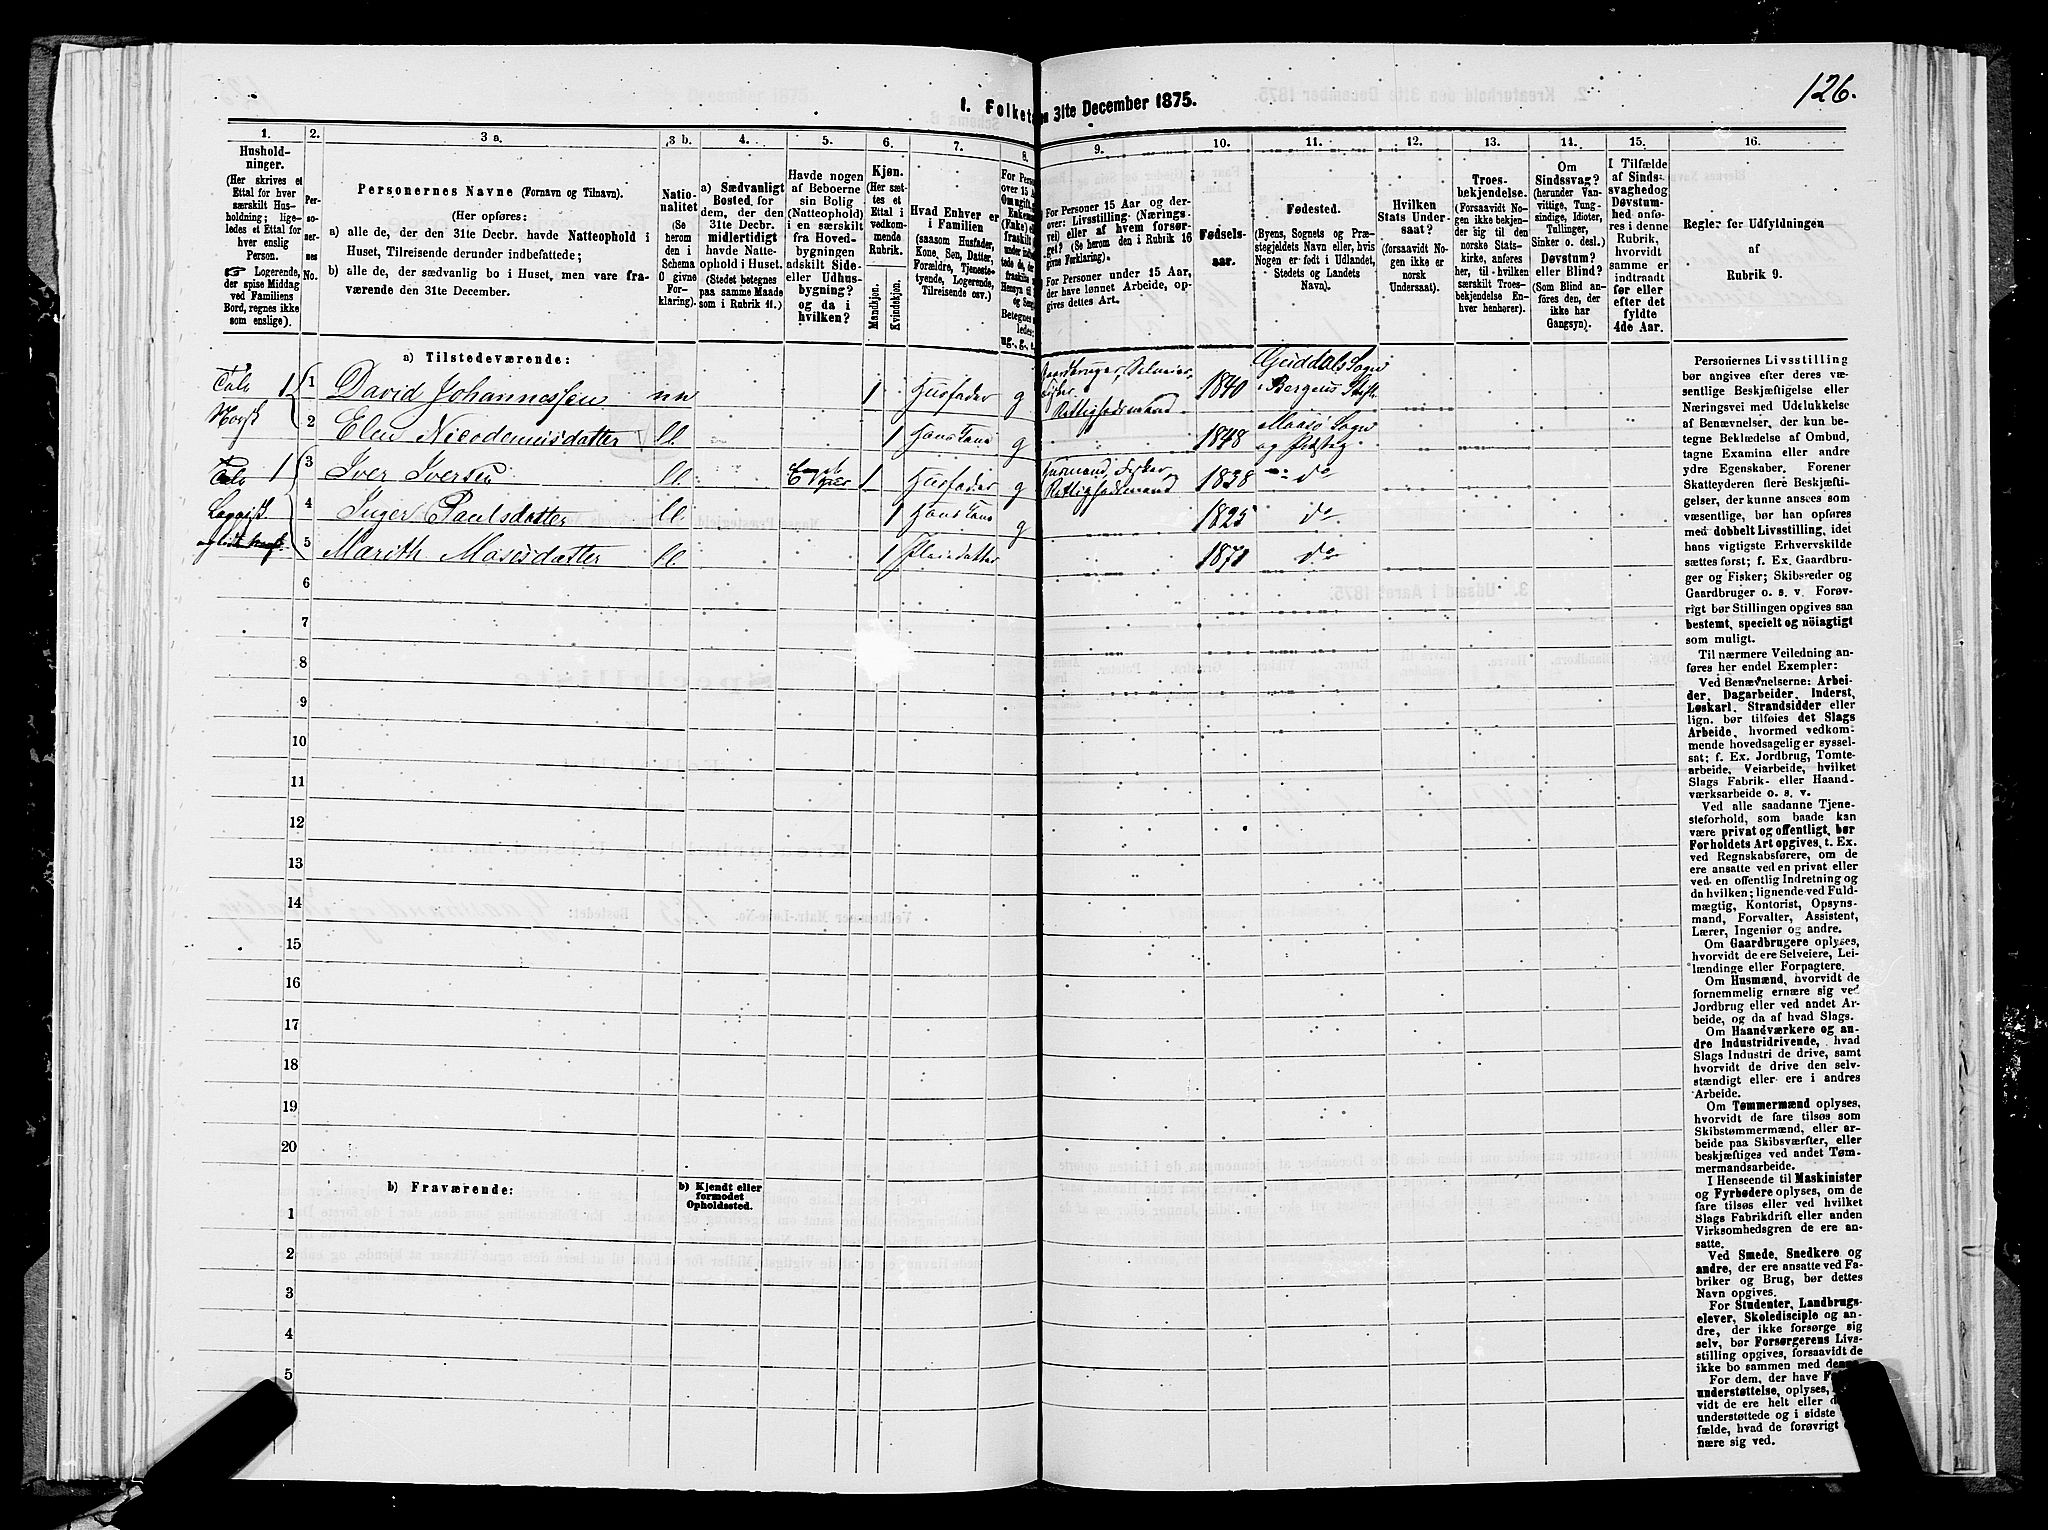 126.
1. Folket
n 31te December 1875.
1.
2.
3 a.
3 b.
4.
5.
6.
7.
8.
9.
10.
11.
12.
13.
14.
15.
16.
Hushold-
ninger.
(Her skrives et
Ettal for hver
særskilt Hus-
holdning; lige-
ledes et Ettal for
hver enslig
Person.
☞ Logerende,
der spise Middag
ved Familiens
Bord, regnes ikke
som enslige).
Per-
so-
ner-
nes
No.
Personernes Navne (Fornavn og Tilnavn).
(Her opføres:
a) alle de, der den 31te Decbr. havde Natteophold i
Huset, Tilreisende derunder indbefattede;
b) alle de, der sædvanlig bo i Huset, men vare fra-
værende den 31te December.
Natio-
nalitet
(Se
herom
den i
Schema
O givne
For-
klaring).
a) Sædvanligt
Bosted, for
dem, der den
31te Decbr.
midlertidigt
havde Natte-
ophold i Huset.
(Stedet betegnes
paa samme Maade
som i Rubrik 11.)
Havde nogen
af Beboerne
sin Bolig
(Natteophold)
i en særskilt
fra Hoved-
bygningen
adskilt Side-
eller Udhus-
bygning?
og da i
hvilken?
Kjøn.
(Her sæt-
tes et
Ettal i
vedkom-
mende
Rubrik.
Mandkjøn.
Kvindekjøn.
Hvad Enhver er
i Familien
(saasom Husfader,
Kone, Søn, Datter,
Forældre, Tjeneste-
tyende, Logerende,
Tilreisende osv.)
For Personer 15 Aar og der-
over: Livsstilling (Nærings-
vei) eller af hvem forsør-
get? (Se herom den i Rubrik 16
givne Forklaring).
For Personer under 15 Aar,
der have lønnet Arbeide, op-
gives dettes Art.
Fødsels-
aar.
Fødested.
(Byens, Sognets og Præ-
stegjeldets Navn eller, hvis
Nogen er født i Udlandet,
Stedets og Landets
Navn).
Hvilken
Stats Under-
saat?
(forsaavidt No-
gen ikke er
norsk
Undersaat).
Troes-
bekjendelse.
(Forsaavidt No-
gen ikke bekjen-
der sig til den
norske Stats-
kirke, anføres
her, til hvilken
særskilt Troes-
bekjendelse En-
hver henhører).
Om
Sindssvag?
(herunder Van-
vittige, Tung-
sindige, Idioter,
Tullinger,
Sinker o. desl.)
Døvstum?
eller Blind?
(Som Blind an-
føres den, der
ikke har
Gangsyn).
I Tilfælde
af Sinds-
svaghed og
Døvstum-
hed anfø-
res i denne
Rubrik,
hvorvidt
samme er
indtraadt
før eller
efter det
fyldte
4de Aar.
Regler for Udfyldningen
af
Rubrik 9.
a) Tilstedeværende:
Tale 1 1 David Johannessen nn 1 Husfader g Gaardbruger, Selveier, Fisker Rettighedsmand 1840 Guddals Sogn i Bergens Stift
Norsk 2 Elen Nicodemusdatter ll 1 Hans Kone g 1848 Maasø Sogn og Præsteg
Tale 1 3 Iver Iversen ll 1 Husfader g Fisker Rettighedsmand 1838 do
Lappisk 4 Inger Paulsdatter ll 1 Hans Kone g 1825 do
5 Marith Mosisdatter ll 1 Pleiedatter 1871 do
6
7
8
9
10
11
12
13
14
15
16
17
18
19
20
b) Fraværende:
b) Kjendt eller
formodet
Opholdssted.
1
2
3
4
5
Personernes Livsstilling
bør angives efter deres væ-
sentlige Beskjæftigelse eller
Næringsvei med Udelukkelse
af Benævnelser, der kun be-
tegne Beklædelse af Ombud,
tagne Examina eller andre
ydre Egenskaber. Forener
Skatteyderen flere Beskjæfti-
gelser, der kunne ansees som
væsentlige, bør han opføres
med dobbelt Livsstilling, idet
hans vigtigste Erhvervskilde
sættes først; f. Ex. Gaardbru-
ger og Fisker; Skibsreder og
Gaardbruger o. s. v. Forøv-
rigt bør Stillingen opgives saa
bestemt, specielt og nøiagtigt
som muligt.
Til nærmere Veiledning an-
føres her endel Exempler:
Ved Benævnelserne: Arbei-
der, Dagarbeider, Inderst,
Løskarl, Strandsidder eller
lign. bør tilføies det Slags
Arbeide, hvormed vedkom-
mende hovedsagelig er syssel-
sat; f. Ex. Jordbrug, Tomte-
arbeide, Veiarbeide, hvilket
Slags Fabrik- eller Haand-
værksarbeide o. s. v.
Ved alle saadanne Tjene-
steforhold, som baade kan
være privat og offentligt, bør
Forholdets Art opgives, t. Ex.
ved Regnskabsførere, om de
ere ansatte ved en privat eller
ved en offentlig Indretning og
da hvilken; lignende ved Fuld-
mægtig, Kontorist, Opsyns-
mand, Forvalter, Assistent,
Lærer, Ingeniør og andre.
Om Gaardbrugere oplyses,
hvorvidt de ere Selveiere, Lei-
lændinge eller Forpagtere.
Om Husmænd, hvorvidt de
fornemmelig ernære sig ved
Jordbrug eller ved andet Ar-
beide, og da af hvad Slags.
Om Haandværkere og an-
dre Industridrivende, hvad
Slags Industri de drive, samt
hvorvidt de drive den selv-
stændigt eller ere i andres
Arbeide.
Om Tømmermænd oplyses,
hvorvidt de fare tilsøs som
Skibstømmermænd, eller ar-
beide paa Skibsværfter, eller
beskjæftiges ved andet Tøm-
mermandsarbeide.
I Henseende til Maskinister
og Fyrbødere oplyses, om de
fare tilsøs eller ved hvilket
Slags Fabrikdrift eller anden
Virksomhedsgren de ere an-
satte.
Ved Smede, Snedkere og
andre, der ere ansatte ved Fa-
briker og Brug, bør dettes
Navn opgives.
For Studenter, Landbrugs-
elever, Skoledisciple og an-
dre, der ikke forsørge sig
selv, bør Forsørgerens Livs-
stilling opgives, forsaavidt de
ikke bo sammen med denne.
For dem, der have
understøttelse, oplyses,
vidt de ere helt eller
understøttede og i sidste
fælde, hvad de forøvrigt
nære sig ved.